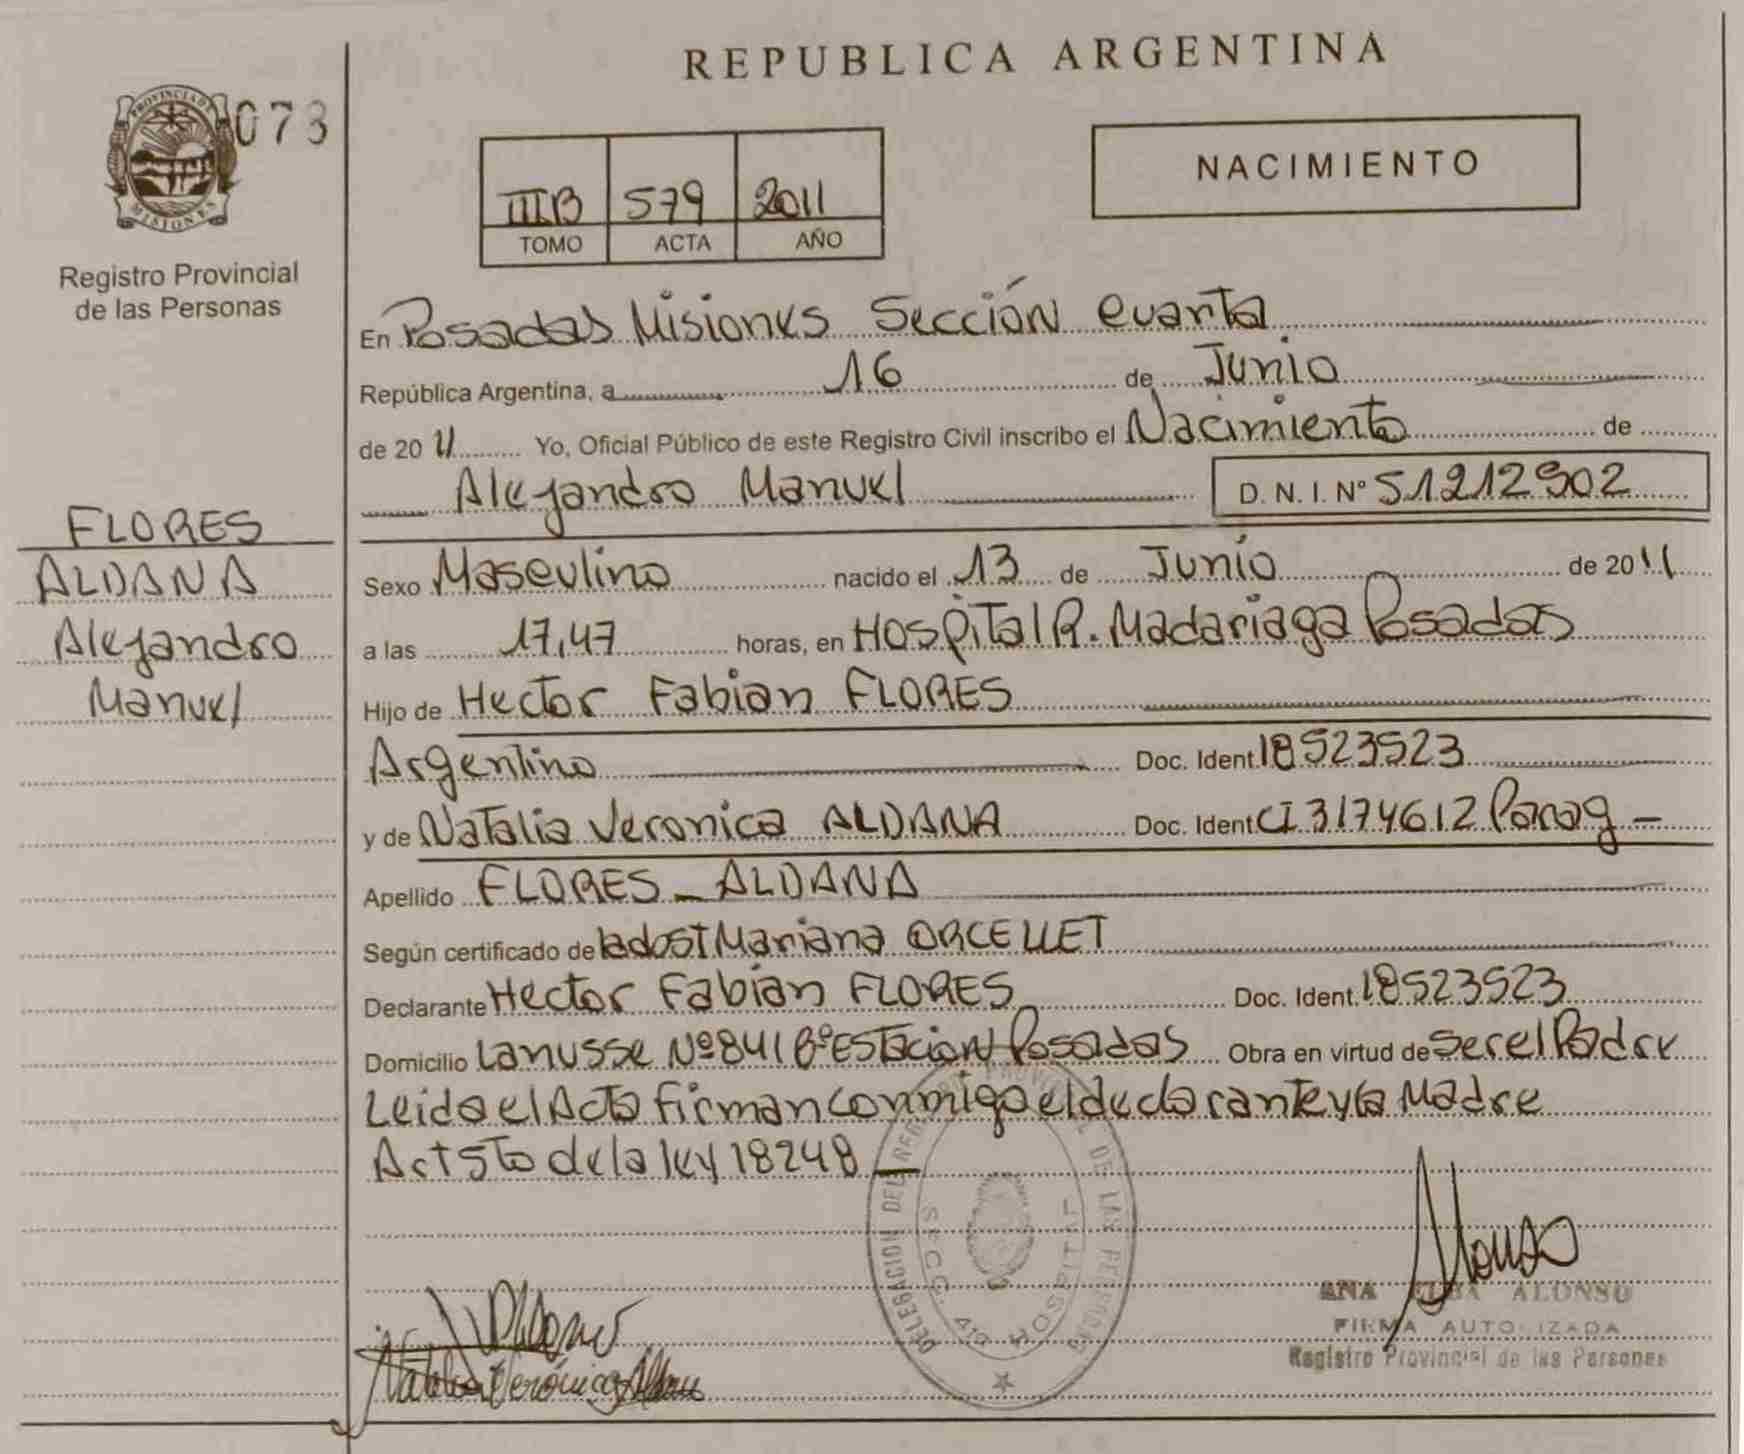 REPUBLICA ARGENTINA
PROVINCIA DE MISIONES
073
Registro Provincial
de las Personas
NACIMIENTO
IIIB 579 2011
TOMO ACTA AÑO
En Posadas Misiones Sección Cuarta
República Argentina, a 16 de Junio
de 2011 Yo, Oficial Público de este Registro Civil inscribo el Nacimiento de
Alejandro Manuel D. N. I. Nº 51212902
FLORES
ALDANA
Alejandro
Manuel
Sexo Masculino nacido el 13 de Junio de 2011
a las 17,47 horas, en Hospital R. Madariaga Posadas
Hijo de Hector Fabian FLORES
Argentino Doc. Ident. 18523523
y de Natalia Veronica ALDANA Doc. Ident CI 3174612 Parag -
Apellido FLORES - ALDANA
Según certificado de la obst Mariana ORCELLET
Declarante Hector Fabian FLORES Doc. Ident. 18523523
Domicilio Lanusse Nº 841 Bº Estacion Posadas Obra en virtud de ser el Padre
Leida el Acta firman conmigo el declarante y la Madre
Art 5to de la ley 18248
DELEGACION DEL REGISTRO PROVINCIAL DE LAS PERSONAS
SECC. 4ta HOSPITAL
Alonso
ANA ELBA ALONSO
FIRMA AUTORIZADA
Registro Provincial de las Personas
Natalia Verónica Aldana